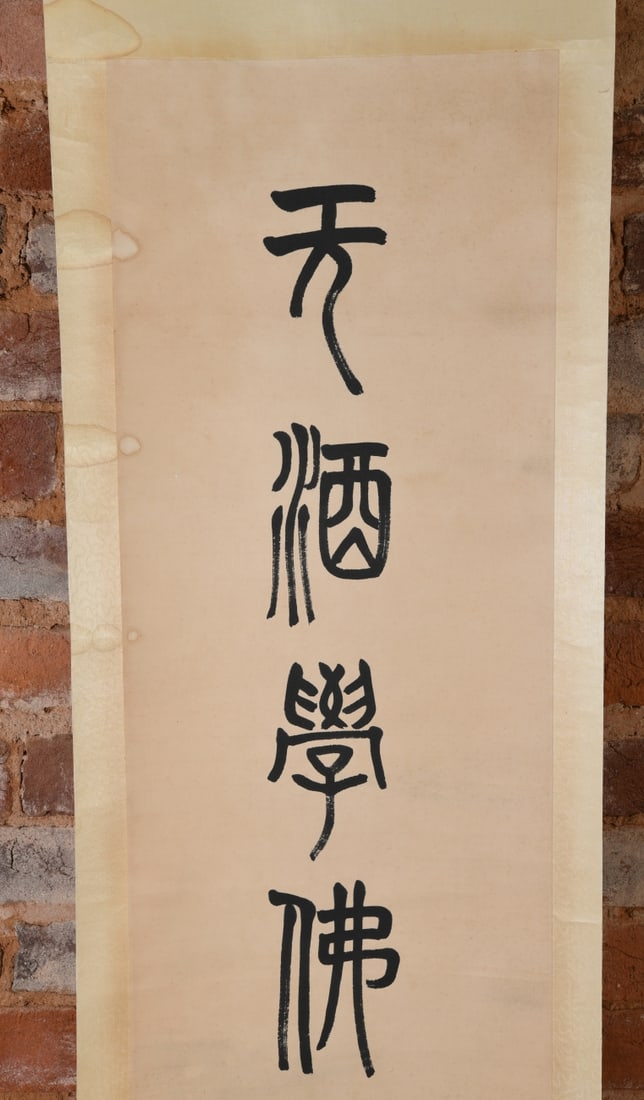 无酒學佛